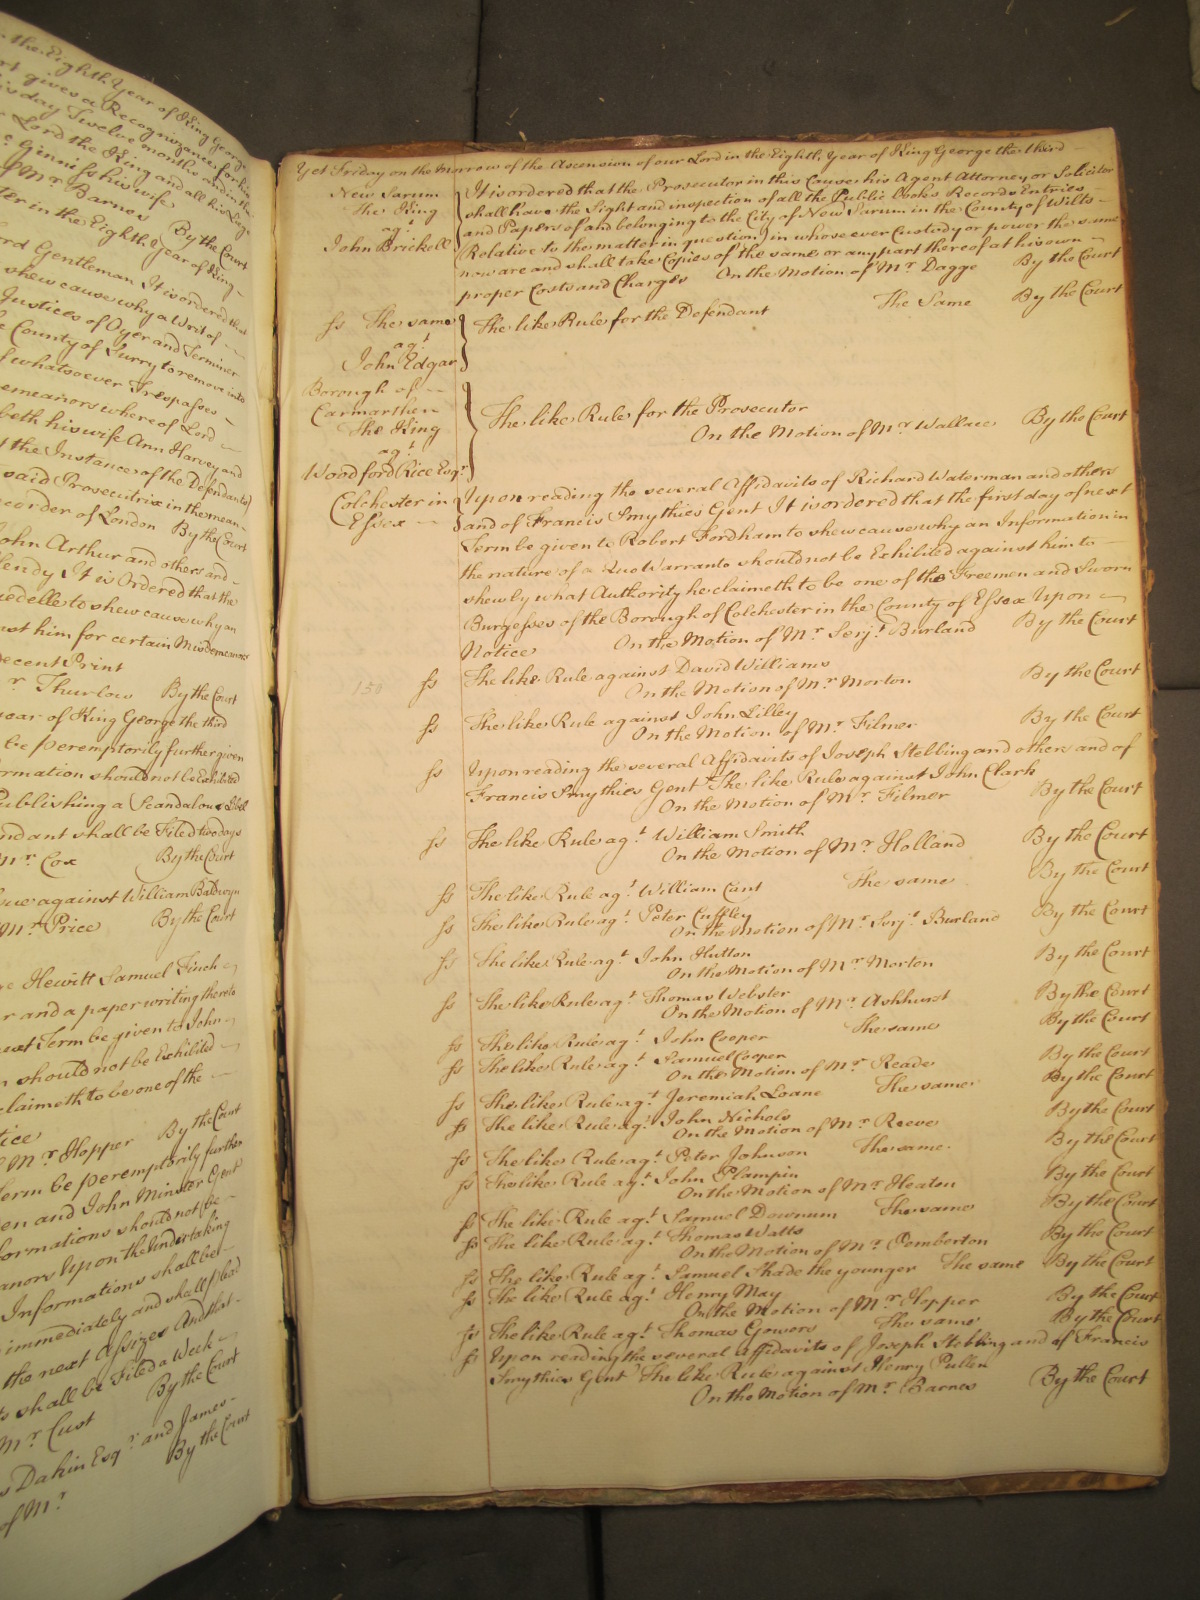 the Eighth Year of King George
gives a Recognizance for his
this day Twelve months and in the
Lord the King and all his Liege
Ginnis his wife
Mr Barnes By the Court
in the Eighth Year of King
Gentleman It is ordered that
shew cause why a Writ of
Justices of Oyer and Terminer
County of Surry to remove into
whatsoever Trespasses
whereof Lord
beth his wife Ann Harvey and
the Instance of the Defendants
said Prosecutrix in the mean
ecorder of London By the Court
John Arthur and others and
It is Ordered that the
to shew cause why an
him for certain Misdemeanors
Print
r Thurlow By the Court
year of King George the third
be peremptorily further given
should not be Exhibited
Publishing a Scandalous Libel
shall be Filed two days
Mr Cox By the Court
against William Baldwyn
Mr Price By the Court
Hewitt Samuel Finch
and a paper writing thereto
Term be given to John
should not be Exhibited
claimeth to be one of the
Mr Hopper By the Court
Term be peremptorily further
and John Minster Gent
should not be
Upon the Undertaking
Informations shall be
immediately and shall plead
the next Assizes And that
shall be Filed a Week
Mr Cust By the Court
Dakin Esqr and James
of Mr By the Court
Yet Friday on the Morrow of the Ascension of our Lord in the Eighth Year of King George the third
New Sarum
The King
agt
John Brickell
It is ordered that the Prosecutor in this Cause his Agent Attorney or Solicitor
shall have the Sight and inspection of all the Public books Records Entries
and Papers of and belonging to the City of New Sarum in the County of Wilts
Relative to the matter in question in whose ever Custody or power the same
now are and shall take Copies of the same or any part thereof at his own
proper Costs and Charges On the Motion of Mr Dagge By the Court
ss The same
agt
John Edgar
The like Rule for the Defendant The Same By the Court
Borough of
Carmarthen
The King
agt
Woodford Rice Esqr
The like Rule for the Prosecutor
On the Motion of Mr Wallace By the Court
Colchester in
Essex
Upon reading the several Affidavits of Richard Waterman and others
and of Francis Smythies Gent It is ordered that the first day of next
Term be given to Robert Fordham to shew cause why an Information in
the nature of a Quo Warranto should not be Exhibited against him to
shew by what Authority he claimeth to be one of the Freemen and Sworn
Burgesses of the Borough of Colchester in the County of Essex Upon
Notice On the Motion of Mr Serjt Burland By the Court
150
ss The like Rule against David Williams
On the Motion of Mr Morton By the Court
ss The like Rule against John Lilley
On the Motion of Mr Filmer By the Court
ss Upon reading the several Affidavits of Joseph Stebbing and others and of
Francis Smythies Gent The like Rule against John Clark
On the Motion of Mr Filmer By the Court
ss The like Rule agt William Smith
On the Motion of Mr Holland By the Court
ss The like Rule agt William Cant The same By the Court
ss The like Rule agt Peter Cuffley
On the Motion of Mr Serjt Burland By the Court
ss The like Rule agt John Hutton
On the Motion of Mr Morton By the Court
ss The like Rule agt Thomas Webster
On the Motion of Mr Ashhurst By the Court
ss The like Rule agt John Cooper The same By the Court
ss The like Rule agt Samuel Cooper
On the Motion of Mr Reader By the Court
ss The like Rule agt Jeremiah Loane The same By the Court
ss The like Rule agt John Nichols
On the Motion of Mr Reeve By the Court
ss The like Rule agt Peter Johnson The same By the Court
ss The like Rule agt John Plampin
On the Motion of Mr Heaton By the Court
ss The like Rule agt Samuel Downum The same By the Court
ss The like Rule agt Thomas Watts
On the Motion of Mr Pemberton By the Court
ss The like Rule agt Samuel Shade the younger The same By the Court
ss The like Rule agt Henry May
On the Motion of Mr Hopper By the Court
ss The like Rule agt Thomas Gowers The same By the Court
ss Upon reading the several Affidavits of Joseph Stebbing and of Francis
Smythies Gent The like Rule against Henry Pullen
On the Motion of Mr Barnes By the Court